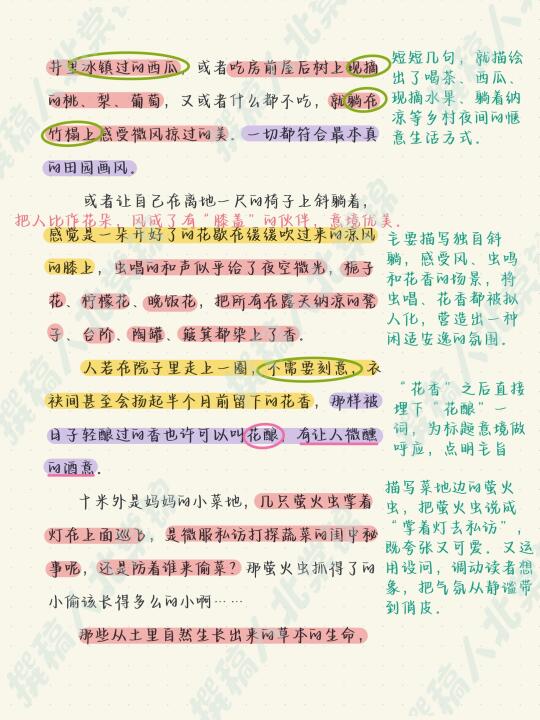 井里冰镇过的西瓜，或者吃房前屋后树上现摘
的桃、梨、葡萄，又或者什么都不吃，就躺在
竹榻上感受微风掠过的美。一切都符合最本真
的田园画风。
短短几句，就描绘
出了喝茶、西瓜、
现摘水果、躺着纳
凉等乡村夜间的惬
意生活方式．
或者让自己在离地一尺的椅子上斜躺着，
把人比作花朵，风成了有“膝盖”的伙伴，意境优美．
感觉是一朵开好了的花歇在缓缓吹过来的凉风
的膝上，虫唱的和声似乎给了夜空微光，栀子
花、柠檬花、晚饭花，把所有在露天纳凉的凳
子、台阶、陶罐、簸箕都染上了香．
主要描写独自斜
躺，感受风、虫鸣
和花香的场景，将
虫唱、花香都被拟
人化，营造出一种
闲适安逸的氛围．
人若在院子里走上一圈，不需要刻意，衣
袂间甚至会扬起半个月前留下的花香，那样被
日子轻酿过的香也许可以叫花酿，有让人微醺
的酒意．
“花香”之后直接
埋下“花酿”一
词，为标题意境做
呼应，点明主旨
十米外是妈妈的小菜地，几只萤火虫掌着
灯在上面巡飞，是微服私访打探蔬菜的闺中秘
事呢，还是防着谁来偷菜？那萤火虫抓得了的
小偷该长得多么的小啊……
描写菜地边的萤火
虫，把萤火虫说成
“掌着灯去私访”，
既夸张又可爱．又运
用设问，调动读者想
象，把气氛从静谧带
到俏皮．
那些从土里自然生长出来的草本的生命，
撰稿人北棠锦